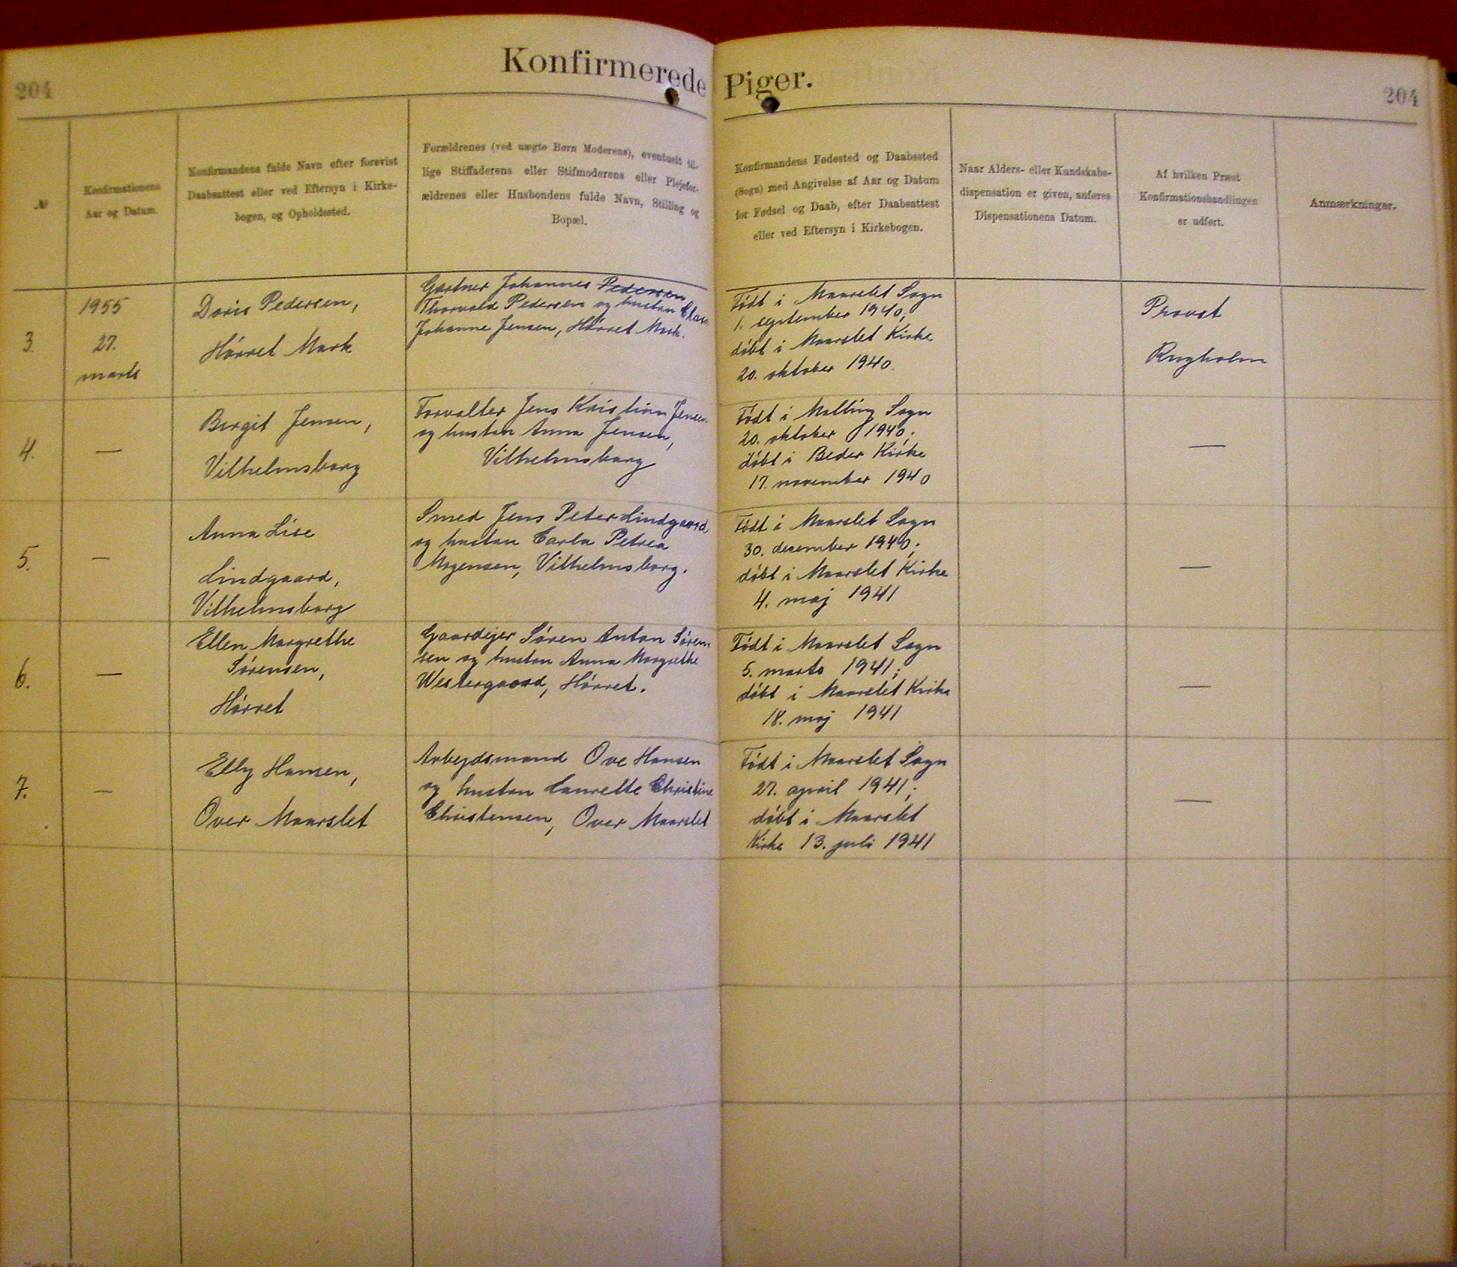 Konfirmerede Piger.
204
204
№
Konfirmationens
Aar og Datum.
Konfirmandens fulde Navn efter forevist
Daabsattest eller ved Eftersyn i Kirke-
bogen, og Opholdssted.
Forældrenes (ved uægte Børn Moderens), eventuelt til-
lige Stiffaderens eller Stifmoderens eller Plejefor-
ældrenes eller Husbondens fulde Navn, Stilling og
Bopæl.
Konfirmandens Fødested og Daabssted
(Sogn) med Angivelse af Aar og Datum
for Fødsel og Daab, efter Daabsattest
eller ved Eftersyn i Kirkebogen.
Naar Alders- eller Kundskabs-
dispensation er given, anføres
Dispensationens Datum.
Af hvilken Præst
Konfirmationshandlingen
er udført.
Anmærkninger.
3.
1955
27.
marts
Doris Pedersen,
Hørret Mark
Gartner Johannes Pedersen
Thorvald Pedersen og hustru Clara
Johanne Jensen, Hørret Mark.
Født i Maarslet Sogn
1. september 1940;
døbt i Maarslet Kirke
20. oktober 1940.
Provst
Rugholm
4.
—
Birgit Jensen,
Vilhelmsborg
Forvalter Jens Kristian Jensen
og hustru Anna Jensen,
Vilhelmsborg
Født i Malling Sogn
20. oktober 1940.
døbt i Beder Kirke
17. november 1940
—
5.
—
Anna Lise
Lindgaard,
Vilhelmsborg
Smed Jens Peter Lindgaard
og hustru Carla Petrea
Mogensen, Vilhelmsborg.
Født i Maarslet Sogn
30. december 1940;
døbt i Maarslet Kirke
4. maj 1941
—
6.
—
Ellen Margrethe
Sørensen,
Hørret
Gaardejer Søren Anton Søren-
sen og hustru Anna Margrethe
Westergaard, Hørret.
Født i Maarslet Sogn
5. marts 1941;
døbt i Maarslet Kirke
18. maj 1941
—
7.
—
Elly Hansen,
Over Maarslet
Arbejdsmand Ove Hansen
og hustru Laurette Christine
Christensen, Over Maarslet
Født i Maarslet Sogn
27. april 1941;
døbt i Maarslet
Kirke 13. juli 1941
—